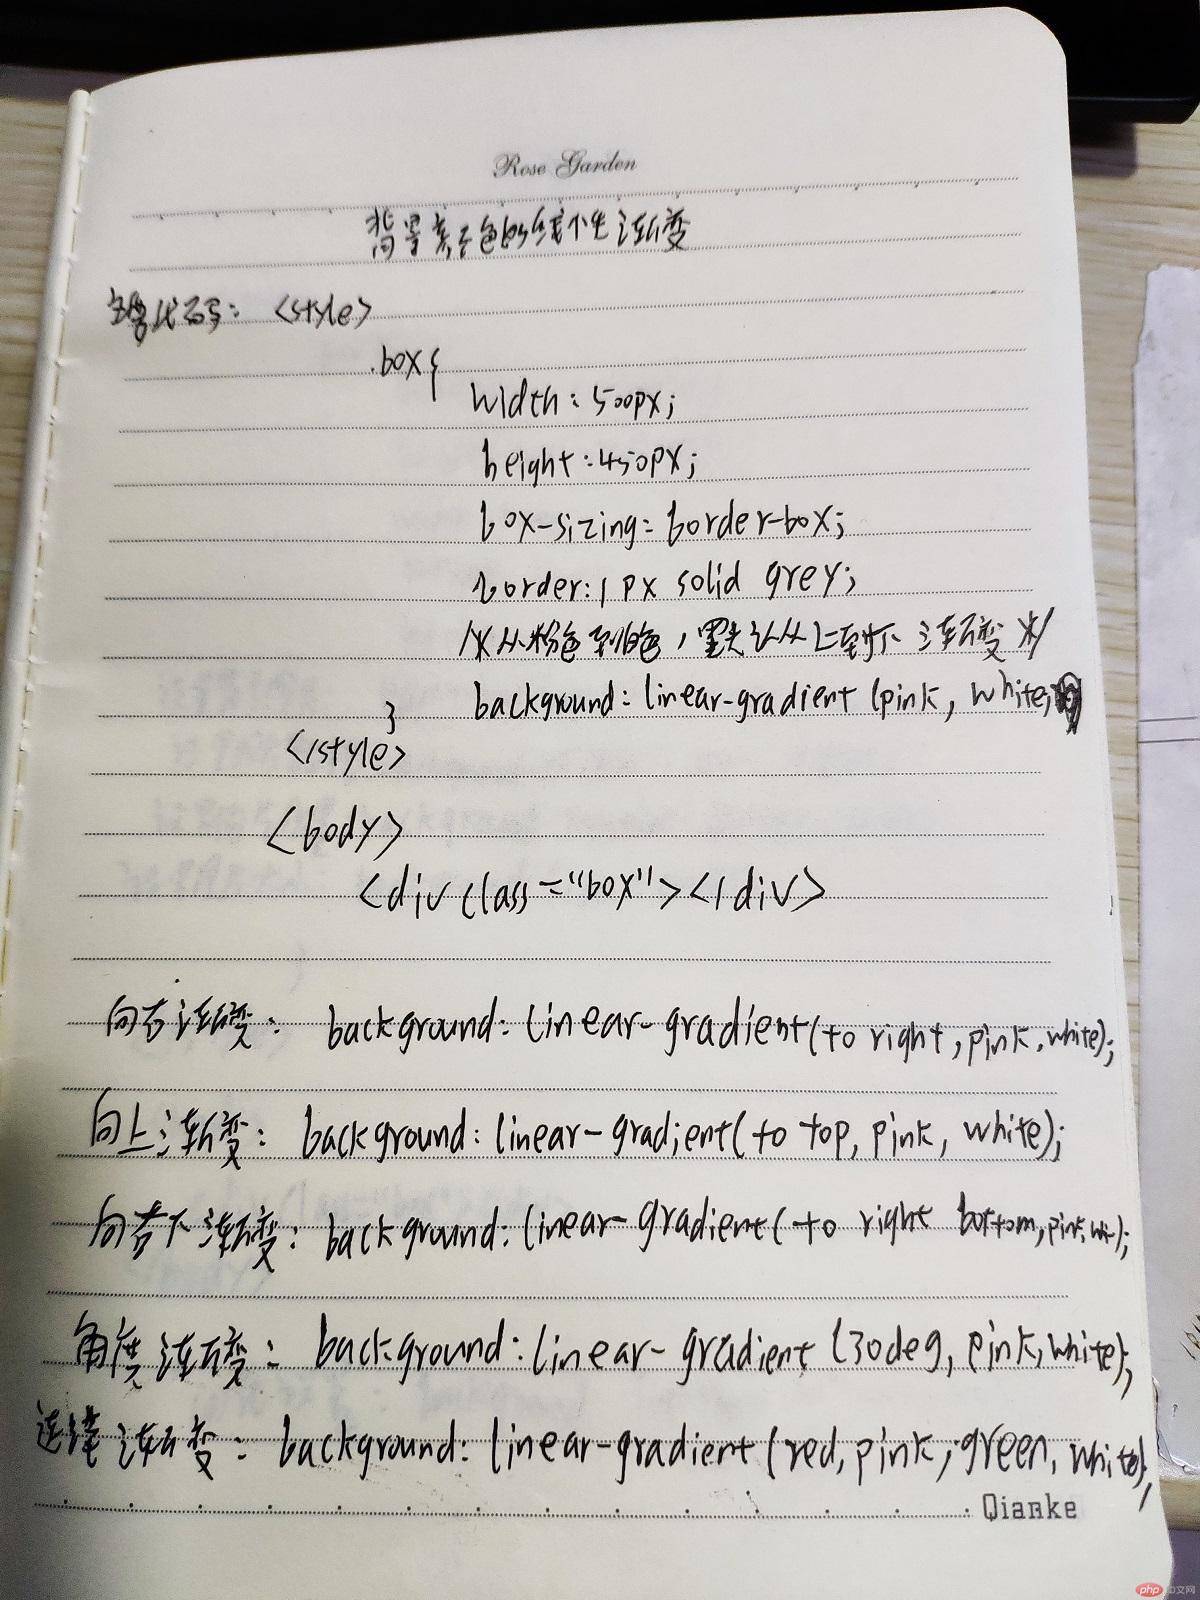 Rose Garden
背景颜色的线性渐变
完整代码: <style>
.box{
width:500px;
height:450px;
box-sizing:border-box;
border:1px solid grey;
/*从粉色到白色,默认从上到下渐变*/
background:linear-gradient(pink, white;
}
</style>
<body>
<div class="box"></div>
向右渐变: background:linear-gradient(to right,pink,white);
向上渐变: background:linear-gradient(to top, pink, white);
向右下渐变: background:linear-gradient(to right bottom,pink,);
角度渐变: background:linear-gradient(30deg, pink,white);
连续渐变: background:linear-gradient(red, pink, green, white);
Qianke
php中文网